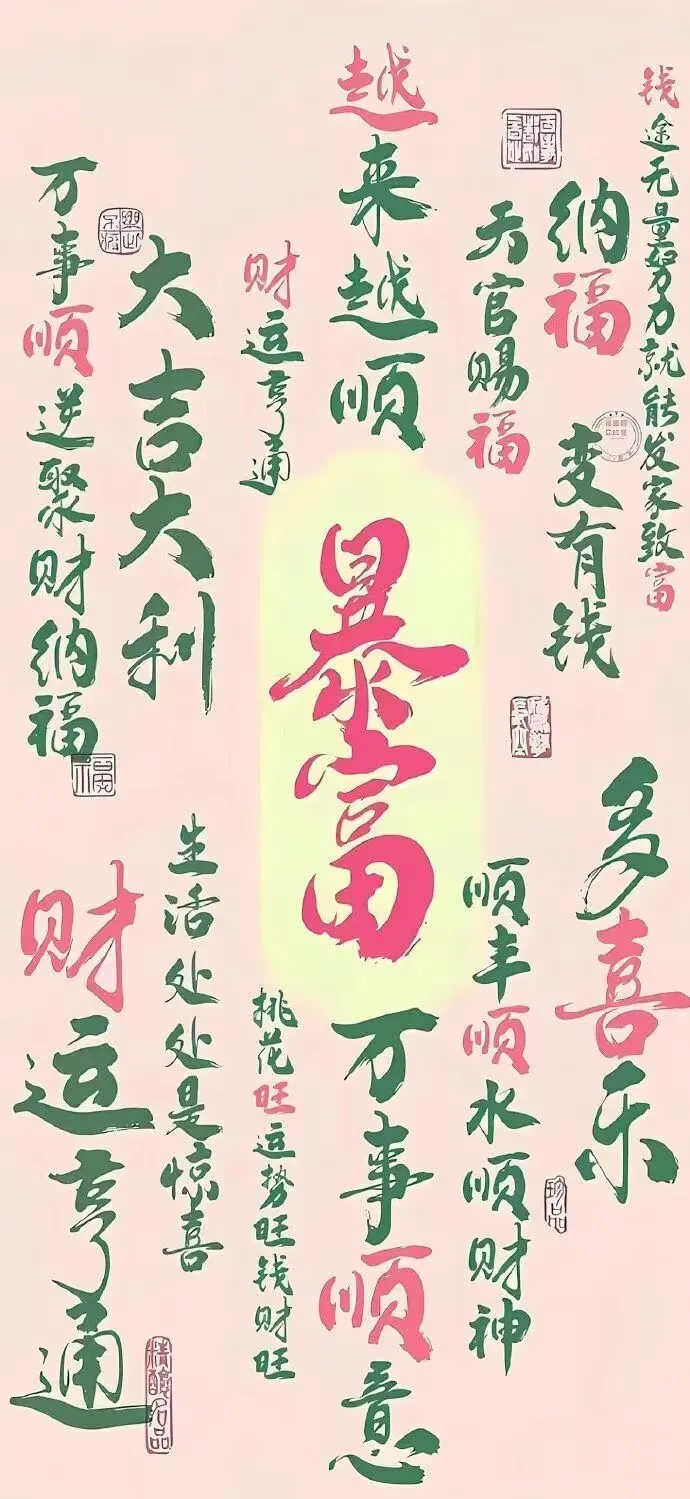 钱途无量努力就能发家致富
纳福
变有钱
多喜乐
天官赐福
顺丰顺水顺财神
越来越顺
暴富
万事顺意
财运亨通
挑花旺运势旺钱财旺
生活处处是惊喜
大吉大利
万事顺逆聚财纳福
财运亨通
福
珍品
精酿名品